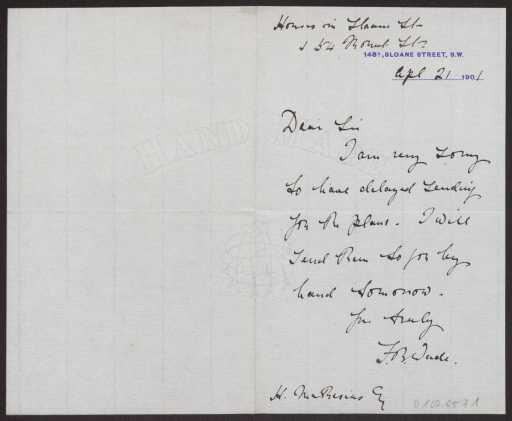 Houses in Sloane St
& 54 Mount St.
148A, SLOANE STREET, S.W.
Apl 21 1901
Dear Sir
I am very sorry
to have delayed sending
you the plans. I will
send them to you by
hand tomorrow.
Yrs truly
F.B. Wade.
H. Muthesius Esq
HAND MADE